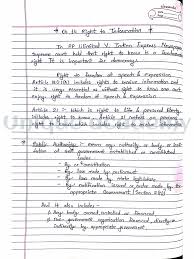 * Ch 16 Right to Information *
In PP Limited V. Indian Express Newspaper
Supreme court held that right to know is a
right. It is important for democracy.
Right to freedom of speech & expression
Article 19(1)(a) includes right to receive information and
it is very essential as without right to know one can't
enjoy right to freedom of speech & expression
Article 21 :- Which is right to life & personal liberty
includes right to know. Article 21 confers on persons
right to know which include right to
information
* Public Authority :- means any authority or body or
of self government established or constituted
Under
- By constitution
- By law made by parliament
- By law made by state legislature
- By notification issued or order made by the
appropriate Government [Section 2(h)]
And it also includes -
Any body owned, controlled or financed
Non government organisation financed, directly or
indirectly by appropriate government.